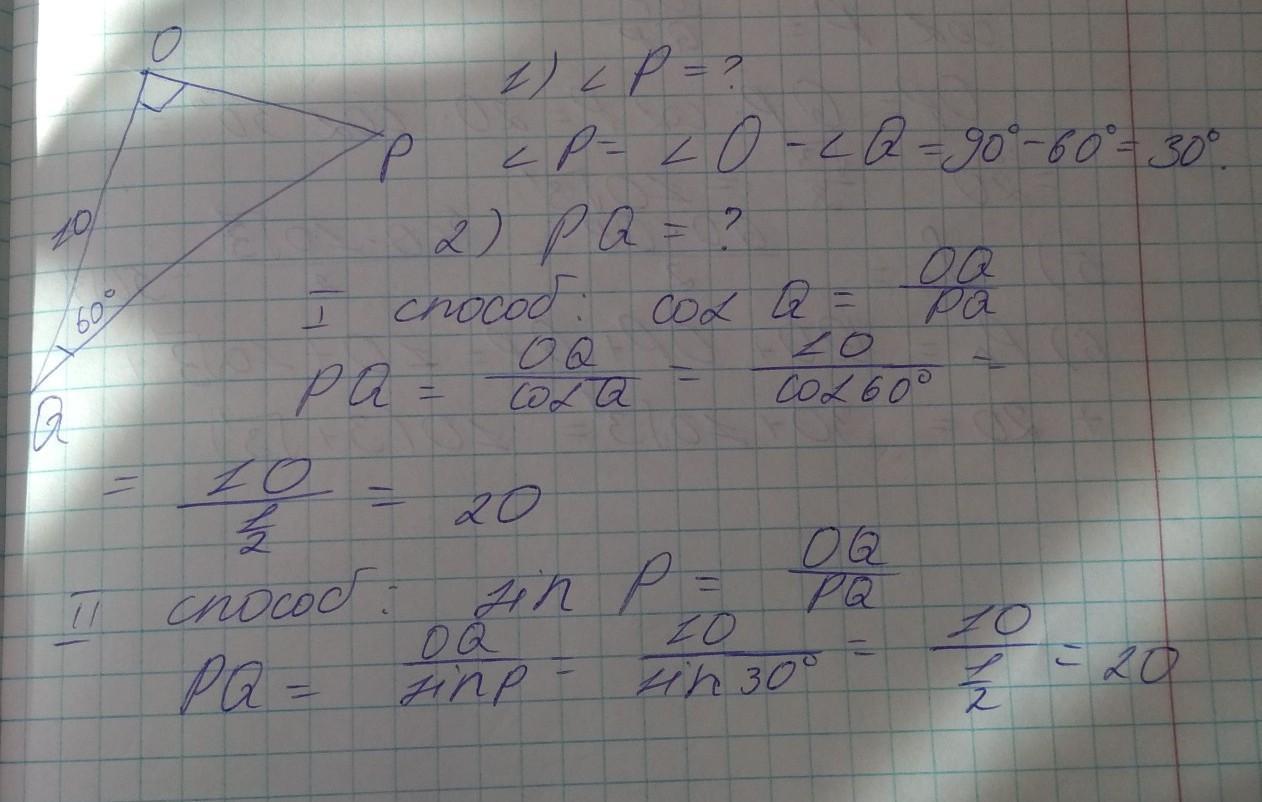 O
1) ∠P = ?
P
∠P = ∠O - ∠Q = 90° - 60° = 30°.
10
2) PQ = ?
60°
I способ: cos Q = OQ/PQ
PQ = OQ/cosQ = 10/cos60° =
Q
= 10/(1/2) = 20
II способ: sin P = OQ/PQ
PQ = OQ/sinP = 10/sin30° = 10/(1/2) = 20